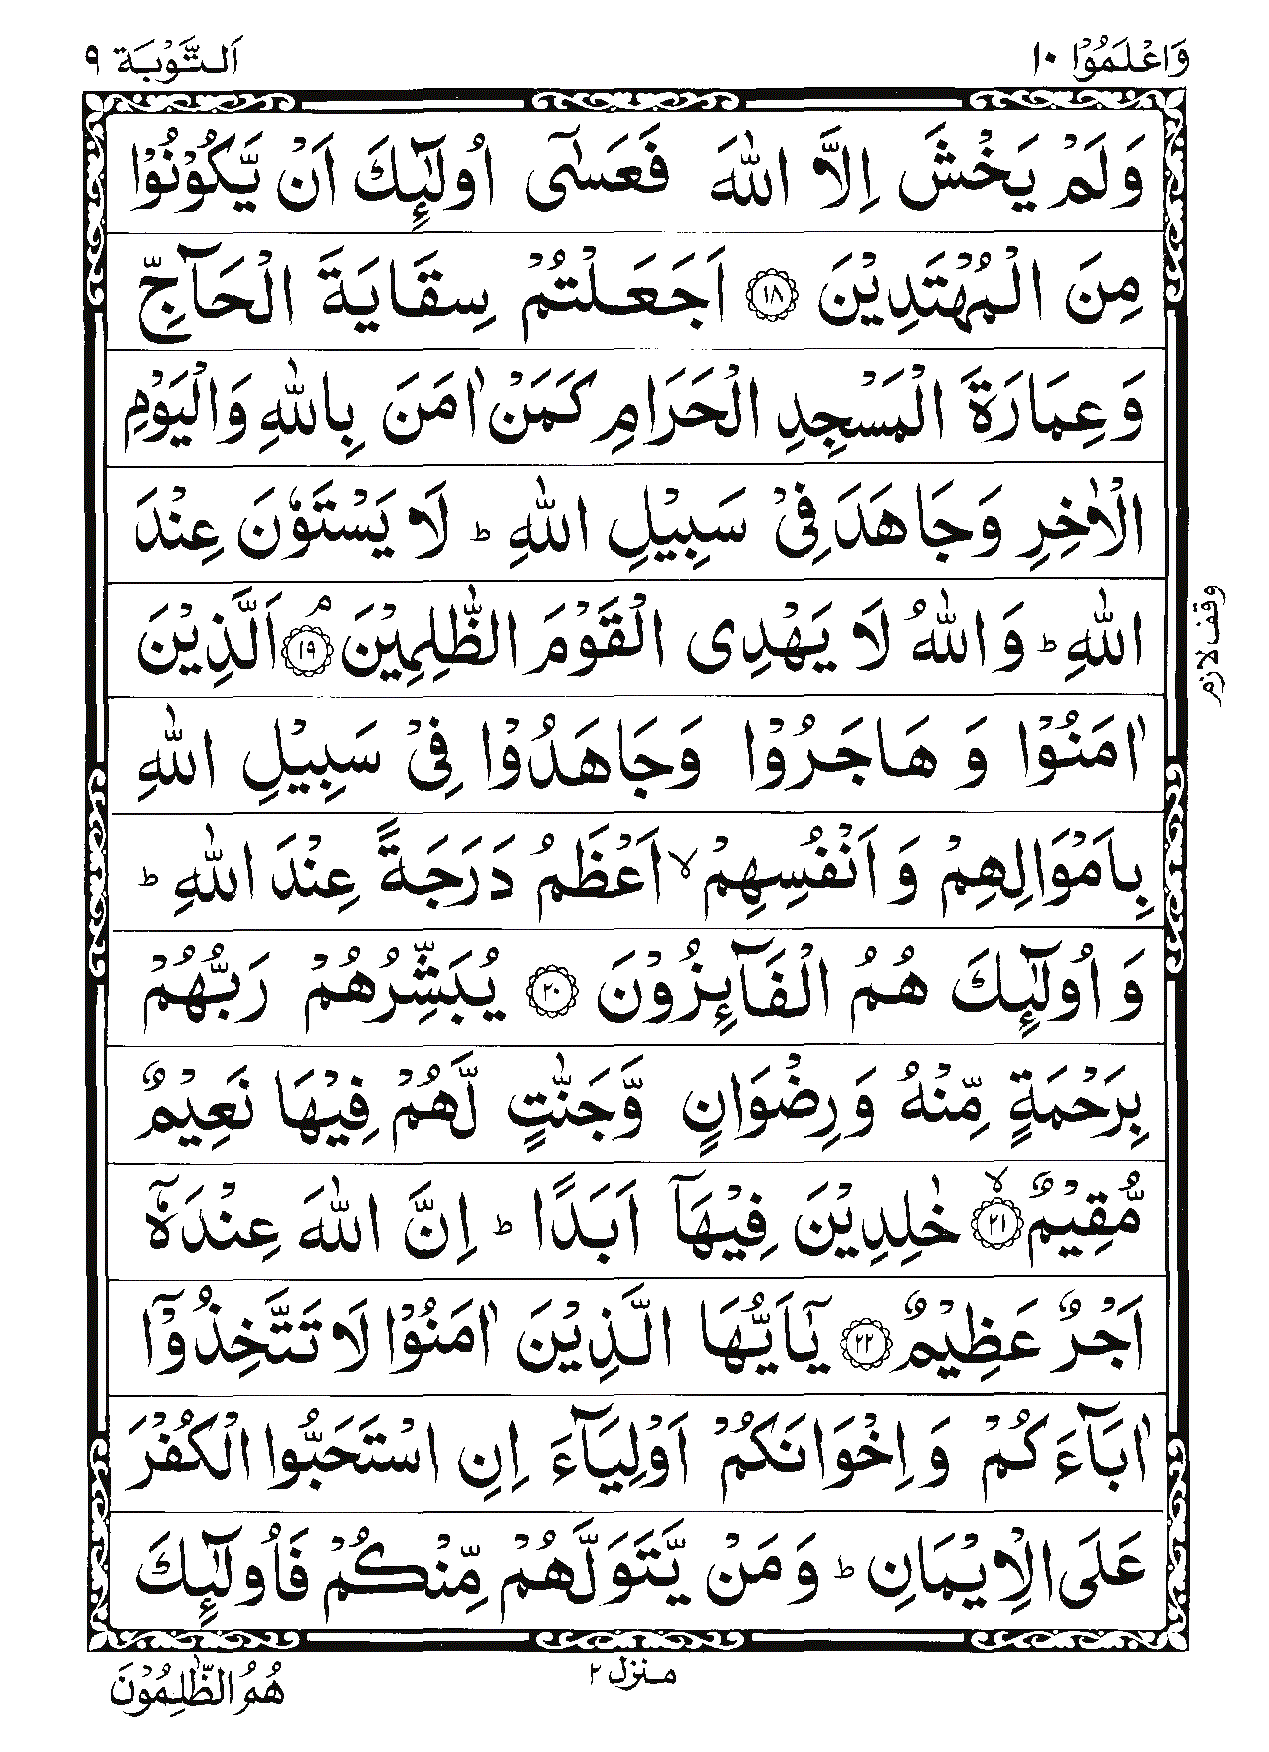 وَاعْلَمُوْۤا ۱۰
اَلتَّوْبَة ۹
وَلَمْ يَخْشَ اِلَّا اللّٰهَ فَعَسٰٓى اُولٰٓئِكَ اَنْ يَّكُوْنُوْا
مِنَ الْمُهْتَدِيْنَ ﴿۱۸﴾ اَجَعَلْتُمْ سِقَايَةَ الْحَآجِّ
وَعِمَارَةَ الْمَسْجِدِ الْحَرَامِ كَمَنْ اٰمَنَ بِاللّٰهِ وَالْيَوْمِ
الْاٰخِرِ وَجَاهَدَ فِىْ سَبِيْلِ اللّٰهِ ؕ لَا يَسْتَوٗنَ عِنْدَ
اللّٰهِ ؕ وَ اللّٰهُ لَا يَهْدِى الْقَوْمَ الظّٰلِمِيْنَ ۘ﴿۱۹﴾ اَلَّذِيْنَ
وقف لازم
اٰمَنُوْا وَ هَاجَرُوْا وَجَاهَدُوْا فِىْ سَبِيْلِ اللّٰهِ
بِاَمْوَالِهِمْ وَ اَنْفُسِهِمْ ۙ اَعْظَمُ دَرَجَةً عِنْدَ اللّٰهِ ؕ
وَ اُولٰٓئِكَ هُمُ الْفَآئِزُوْنَ ﴿۲۰﴾ يُبَشِّرُهُمْ رَبُّهُمْ
بِرَحْمَةٍ مِّنْهُ وَ رِضْوَانٍ وَّجَنّٰتٍ لَّهُمْ فِيْهَا نَعِيْمٌ
مُّقِيْمٌ ۙ﴿۲۱﴾ خٰلِدِيْنَ فِيْهَاۤ اَبَدًا ؕ اِنَّ اللّٰهَ عِنْدَهٗۤ
اَجْرٌ عَظِيْمٌ ﴿۲۲﴾ يٰۤاَيُّهَا الَّذِيْنَ اٰمَنُوْا لَا تَتَّخِذُوْۤا
اٰبَآءَكُمْ وَ اِخْوَانَكُمْ اَوْلِيَآءَ اِنِ اسْتَحَبُّوا الْكُفْرَ
عَلَى الْاِيْمَانِ ؕ وَ مَنْ يَّتَوَلَّهُمْ مِّنْكُمْ فَاُولٰٓئِكَ
منزل ۲
هُمُ الظّٰلِمُوْنَ